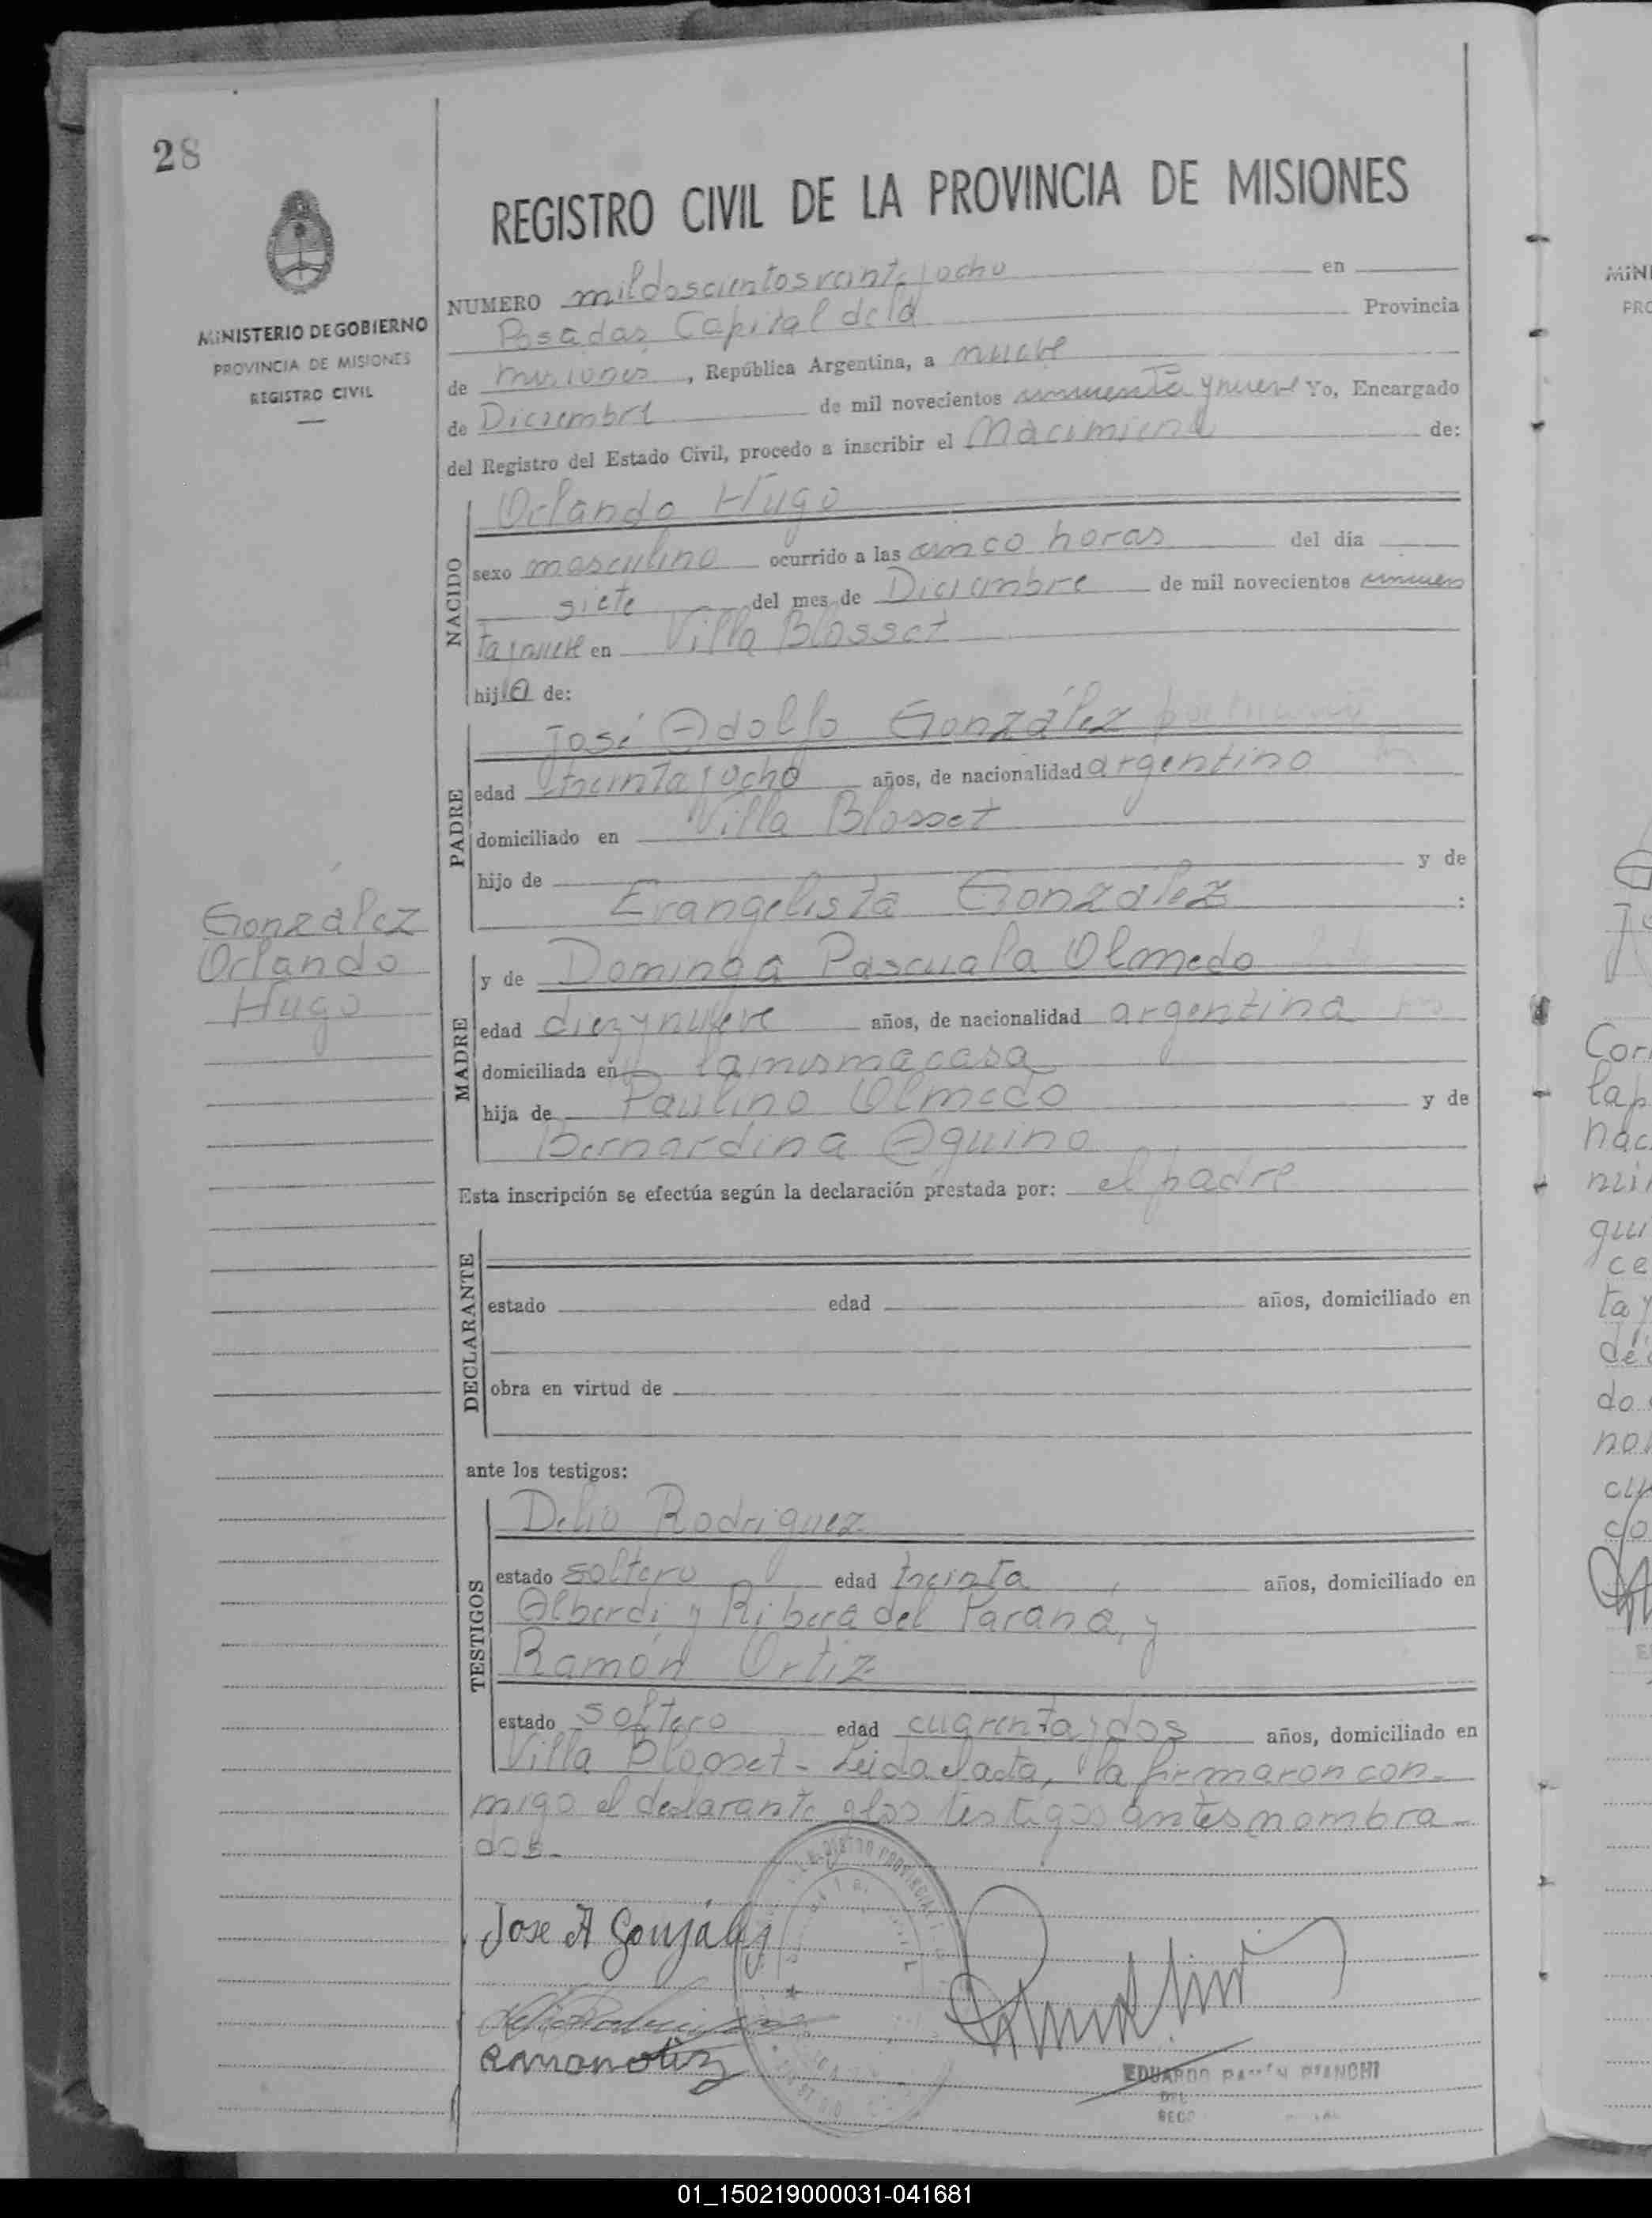 28
MINISTERIO DE GOBIERNO
PROVINCIA DE MISIONES
REGISTRO CIVIL
REGISTRO CIVIL DE LA PROVINCIA DE MISIONES
NUMERO mildoscientosveintiocho en
Posadas Capital dela Provincia
de misiones, República Argentina, a nueve
de Diciembre de mil novecientos cincuenta y nueve Yo, Encargado
del Registro del Estado Civil, procedo a inscribir el Nacimiento de:
NACIDO
Orlando Hugo
sexo masculino ocurrido a las cinco horas del día
siete del mes de Diciembre de mil novecientos cincuen
ta y nueve en Villa Blosset
hijo de:
PADRE
José Adolfo González
edad treinta y ocho años, de nacionalidad argentino
domiciliado en Villa Blosset
hijo de y de
Evangelista González :
González
Orlando
Hugo
MADRE
y de Dominga Pascuala Olmedo
edad diez y nueve años, de nacionalidad argentina
domiciliada en la misma casa
hija de Paulino Olmedo y de
Bernardina Aquino
Esta inscripción se efectúa según la declaración prestada por: el padre
DECLARANTE
estado edad años, domiciliado en
obra en virtud de
ante los testigos:
TESTIGOS
Delio Rodriguez
estado soltero edad treinta, años, domiciliado en
Alberdi y Ribera del Paraná, y
Ramón Ortiz
estado soltero edad cuarenta y dos años, domiciliado en
Villa Blosset - Leida el acta, la firmaron con-
migo el declarante y los testigos antes nombra-
dos-
Jose A González
Ramon Ortiz
EDUARDO RAMÓN BIANCHI
01_150219000031-041681